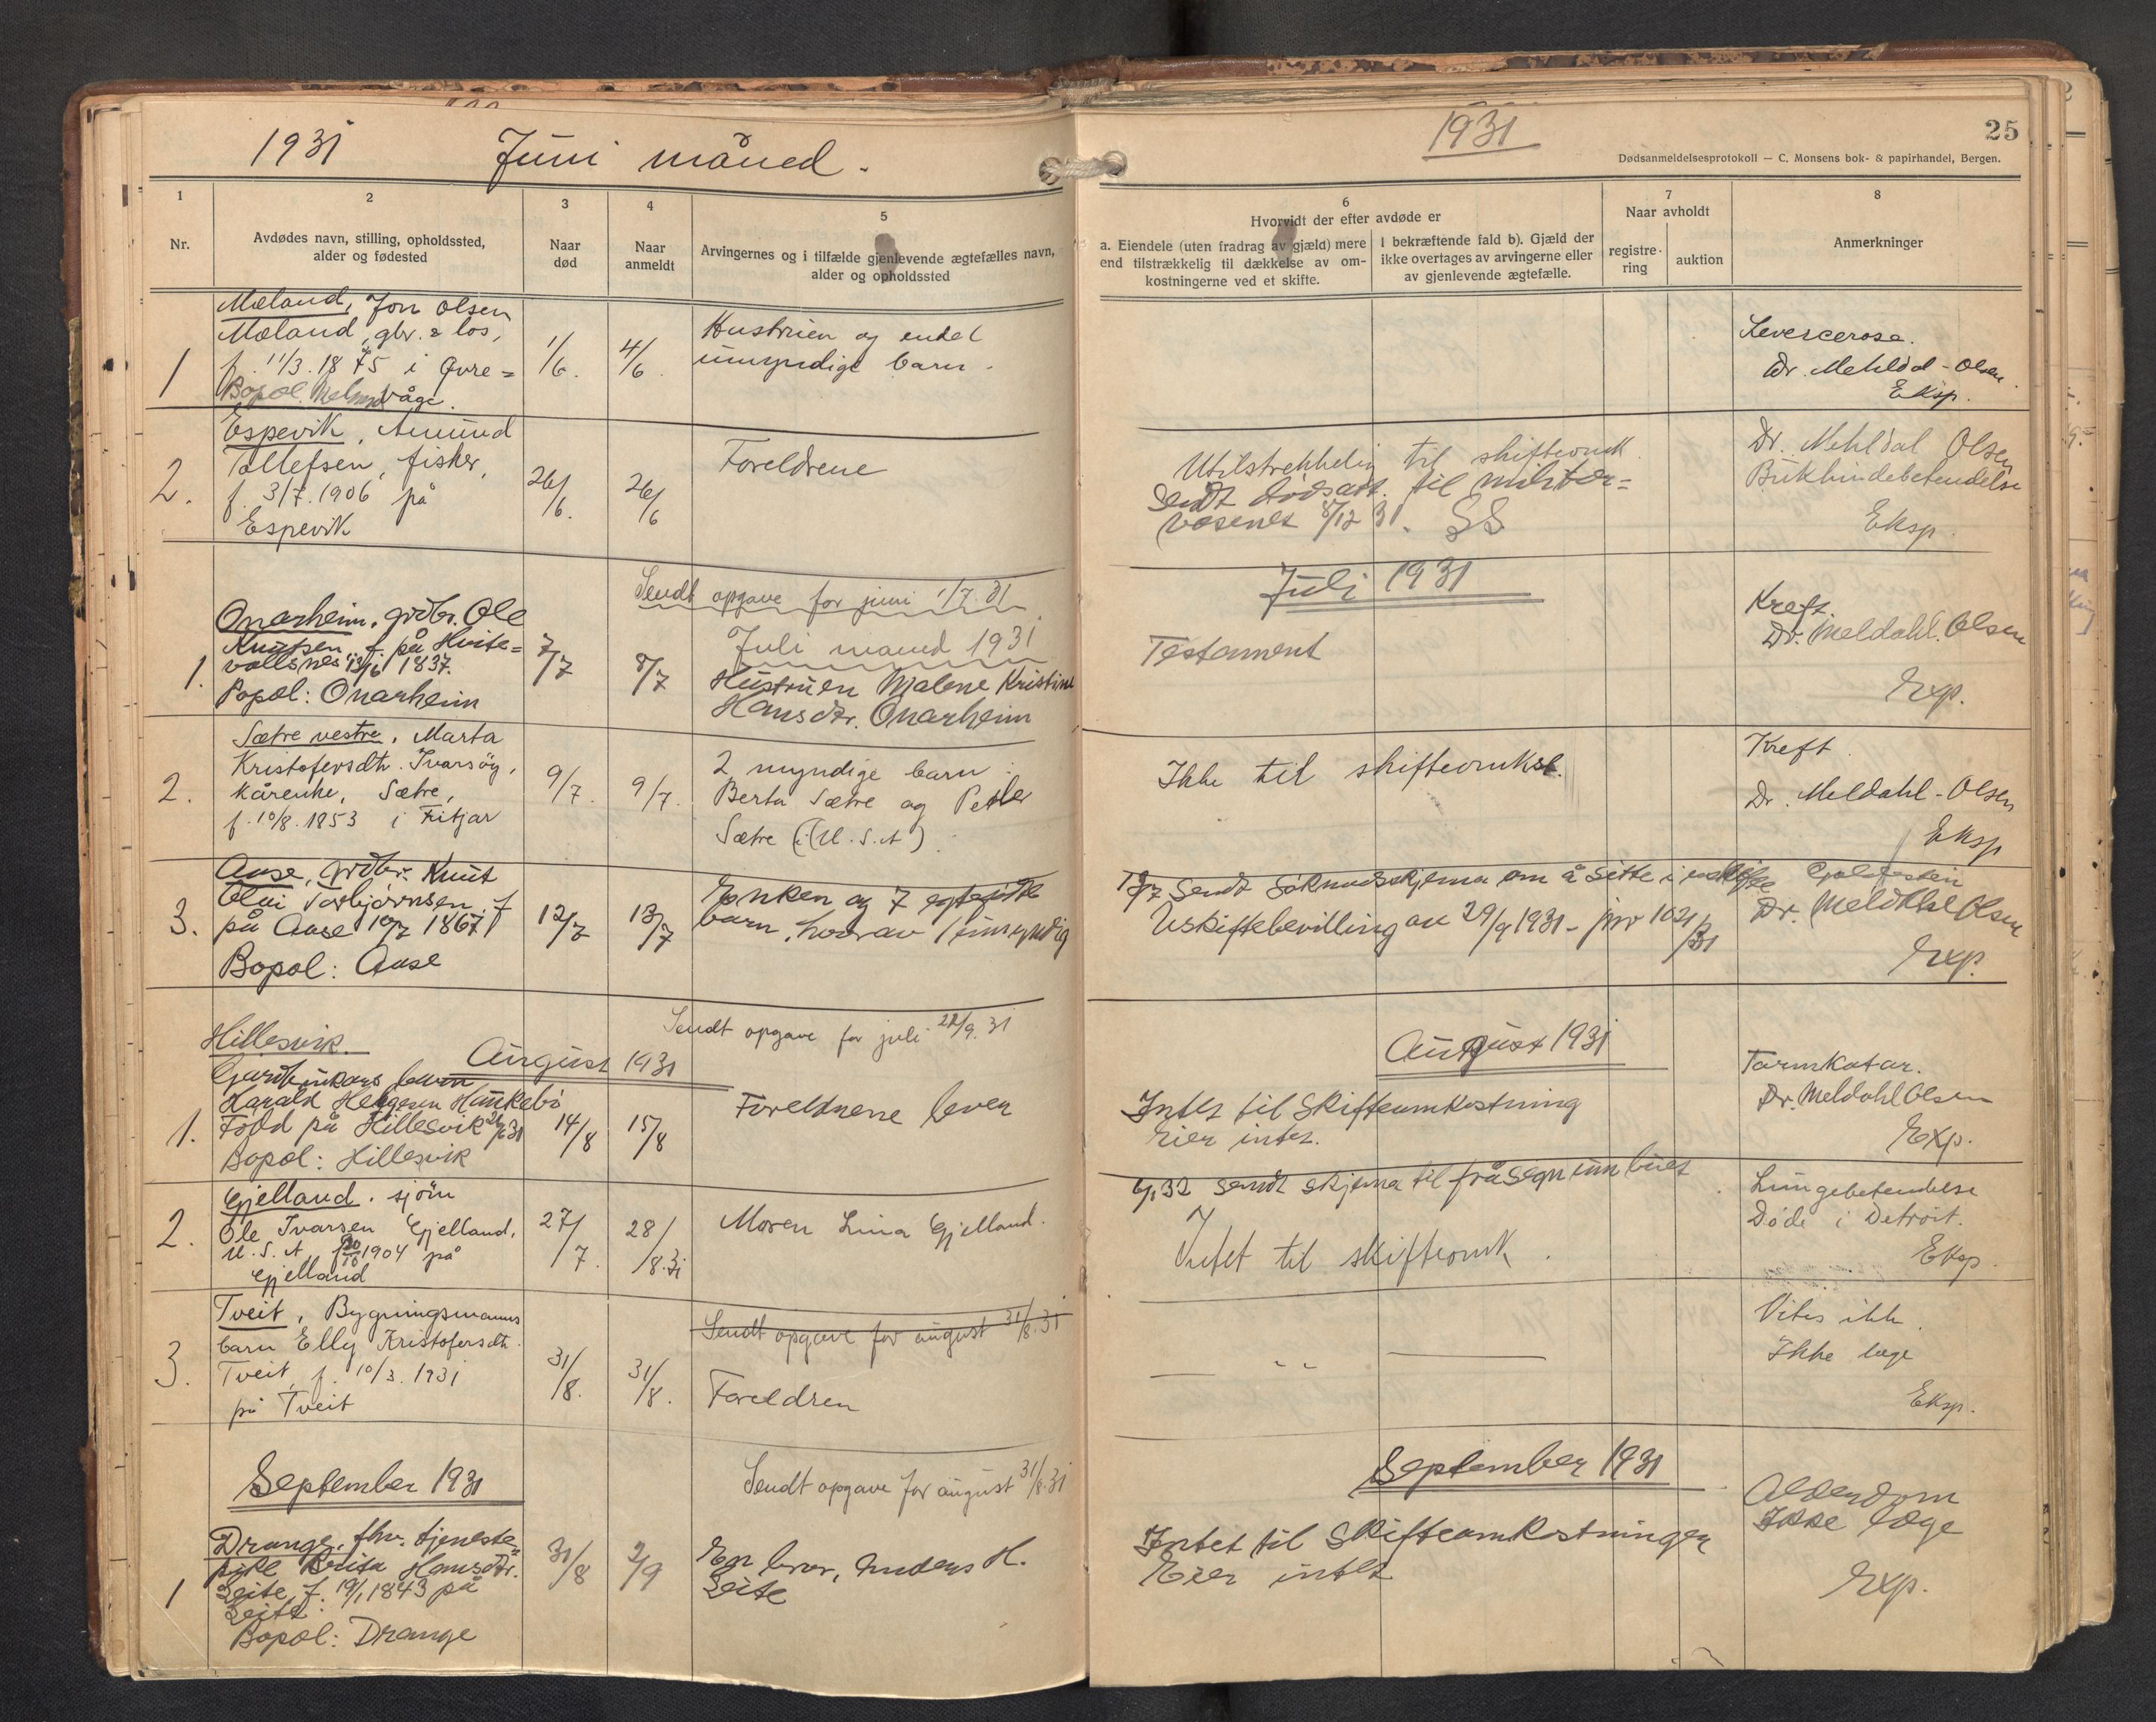 1931 Juni måned.
1
2
3
4
5
Nr.
Avdødes navn, stilling, opholdssted,
alder og fødested
Naar
død
Naar
anmeldt
Arvingernes og i tilfælde gjenlevende ægtefælles navn,
alder og opholdssted
Mæland, Jon Olsen
Mæland, gbr. & los,
f. 11/3. 1875 i Øvre=
Bopæl. våge.
1
1/6.
4/6.
Hustruen og endel
umyndige barn.
Espevik, Amund
Tollefsen, fisker,
f. 3/7. 1906 på
Espevik
2.
26/6.
26/6
Foreldrene
Sendt opgave for juni 1/7.31
Juli maned 1931
Onarheim, grdbr. Ole
Knutsen f. på Hvite=
vollsnes 13/6 1837.
Bopæl: Onarheim
1.
7/7
8/7
Hustruen Malene Kristine
Hansdtr. Onarheim
Sætre vestre, Marta
Kristofersdtr. Ivarsøy,
kårenke, Sætre,
f. 10/8. 1853 i Fitjar
2.
9/7.
9/7.
2 myndige barn:
Berta Sætre og Peder
Sætre (i U.S.A).
Aase, grdbr. Knut
Olai Torbjørnsen f.
på Aase 10/7 1867
Bopæl: Aase
3.
12/7
13/7
Enken og 7 egtefødte
barn, hvorav 1 umyndig
Sendt opgave for juli 22/9.31
August 1931
Hillesvik.
Gardbrukars barn
Harald Helgesen Munkebø
Født på Hillesvik 31
Bopæl: Hillesvik
1.
14/8
15/8
Foreldrene lever
Gjelland. sjøm
Ole Ivarsen Gjelland,
U.S.A, f. 20/10 1904 på
Gjelland
2.
27/7.
28/8.31
Moren Lina Gjelland.
Sendt opgave for august 31/8.31
Tveit, Bygningsmanns
barn Elly Kristofersdtr.
Tveit, f. 10/3. 1931
på Tveit
3.
31/8.
31/8.
Foreldren
Sendt opgave for august 31/8.31
September 1931
Drange, fhv. tjeneste=
pike Brita Hansdtr.
Leite, f. 19/1 1843 på
Leite.
Bopæl: Drange
1
31/8
2/9
En bror, Anders H.
Leite
1931
25
Dødsanmeldelsesprotokoll — C. Monsens bok- & papirhandel, Bergen.
6
Hvorvidt der efter avdøde er
a. Eiendele (uten fradrag av gjæld) mere
end tilstrækkelig til dækkelse av om-
kostningerne ved et skifte.
I bekræftende fald b). Gjæld der
ikke overtages av arvingerne eller
av gjenlevende ægtefælle.
7
Naar avholdt
registre-
ring
auktion
8
Anmerkninger
Levercerose.
Dr. Mehldal-Olsen.
Eksp.
Utilstrekkelig til skifteomk.
Sendt dødsatt. til militær=
væsenet 8/12 31. SS
Dr. Mehldal Olsen
Bukhindebetendelse
Eksp.
Juli 1931
Testament
Kreft.
Dr. Meldahl. Olsen
Exp.
Ikke til skifteomkst.
Kreft.
Dr. Meldahl-Olsen
Eksp
13/7 Sendt Søknadsskjema om å sitte i uskifte
Uskiftebevilling av 29/9 1931 - jnr 1021/31
Dr. Meldahl Olsen
Exp.
August 1931
Intet til Skifteomkostning
Eier intet.
Tarmkatar.
Dr. Meldahl Olsen
Exp.
32 sendt skjema til fråsegn um buet
Intet til skifteomk.
Lungebetendelse
Døde i Detroit.
Eksp.
Vites ikke.
Ikke læge
Eksp.
September 1931
Intet til Skifteomkostninger
Eier intet
Alderdom
Ikke læge
Exp.